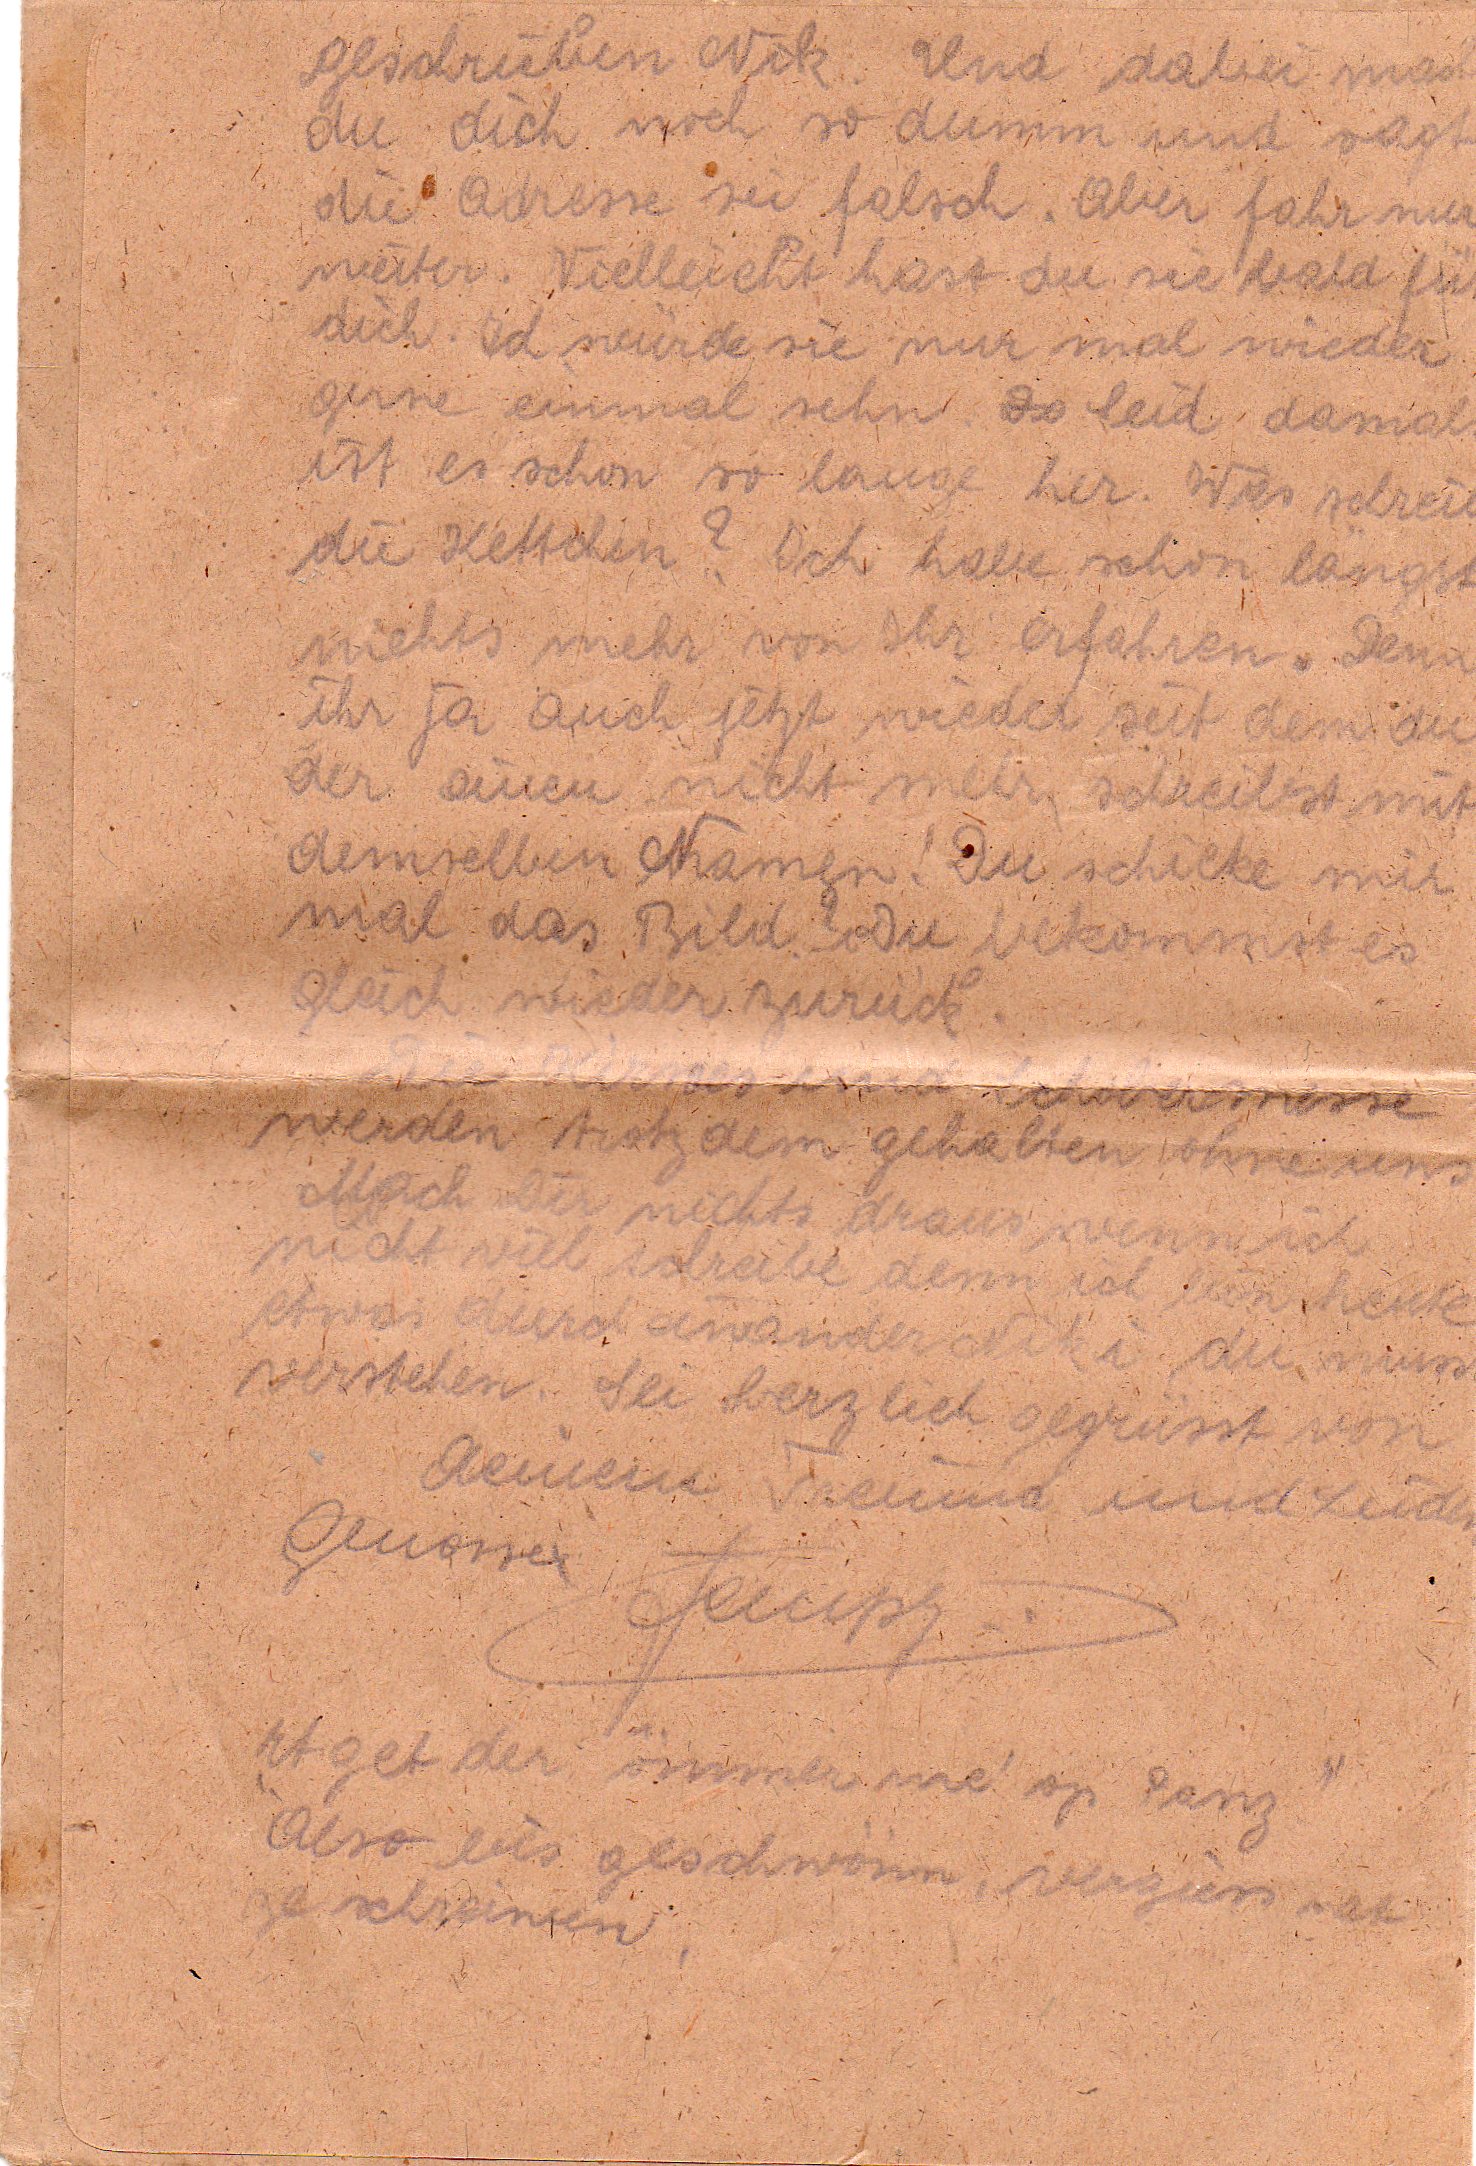 geschrieben Nik. Und dabei mach
du dich noch so dumm und sagt
die Adresse sei falsch. Aber fahr nur
weiter. Vielleicht hast du sie bald für
dich. Ich würde sie nur mal wieder
gerne einmal sehn. So leid damals
ist es schon so lange her. Was schrei
die Kettchen? Ich habe schon längst
nichts mehr von Ihr erfahren. Denn
ihr ja auch jetzt wieder seit dem du
der einen nicht mehr schreibst mit
demselben Namen! Du schicke mir
mal das Bild? Du bekommst es
gleich wieder zurück.
Die Kirmes und Schobermesse
werden trotzdem gehalten ohne uns
Mach Dir nichts draus wenn ich
nicht viel schreibe denn ich bin heute
etwas durcheinander Niki du muss
verstehen. Sei herzlich gegrüsst von
deinem Freund und Leidens
Genossen
Et get der ömmer mé op Panz"
Also bis geschwönn, vergiess net
ze schreiwen,